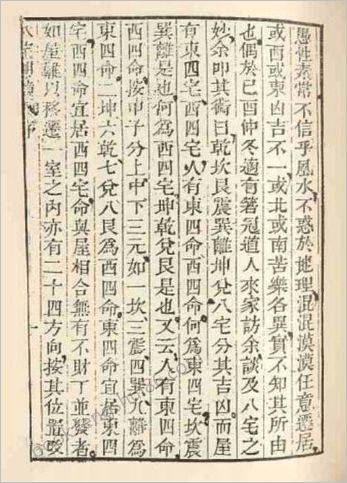 愚性素常不信乎風水不惑於地理混混漠漠任意遷居
或西或東凶吉不一或北或南苦樂各異實不知其所由
也偶於己酉仲冬適有箬冠道人來家訪余談及八宅之
妙余叩其術曰乾坎艮震巽離坤兌八宅分其吉凶而屋
有東四宅西四宅人有東四命西四命何為東四宅坎震
巽離是也何為西四宅坤乾兌艮是也又云人有東四命
西四命按甲子分上中下三元如一坎三震四巽九離為
東四命二坤六乾七兌八艮為西四命東四命宜居東四
宅西四命宜居西四宅命與屋相合無有不財丁並發者
如屋難以移遷一室之內亦有二十四方向按其位置